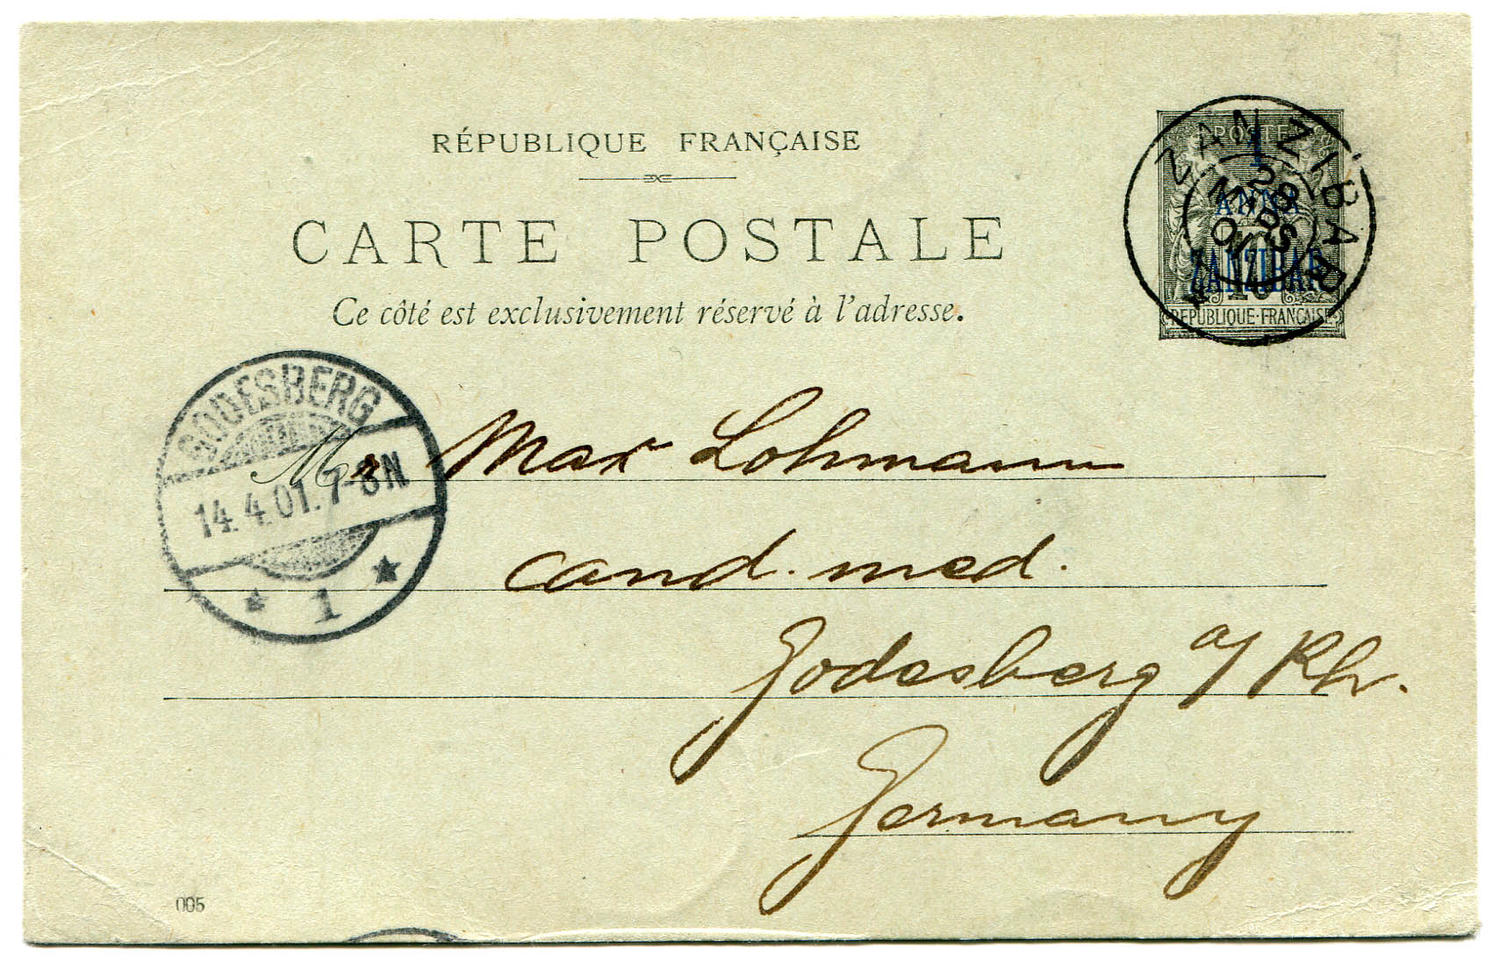 RÉPUBLIQUE FRANÇAISE
CARTE POSTALE
Ce côté est exclusivement réservé à l'adresse.
POSTES
1
ANNA
ZANZIBAR
10
REPUBLIQUE·FRANÇAISE
ZANZIBAR
28
MARS
01
GODESBERG
14.4.01.7-8N
* 1 *
Mr Max Lohmann
cand. med.
Godesberg a/ Rh.
Germany
005